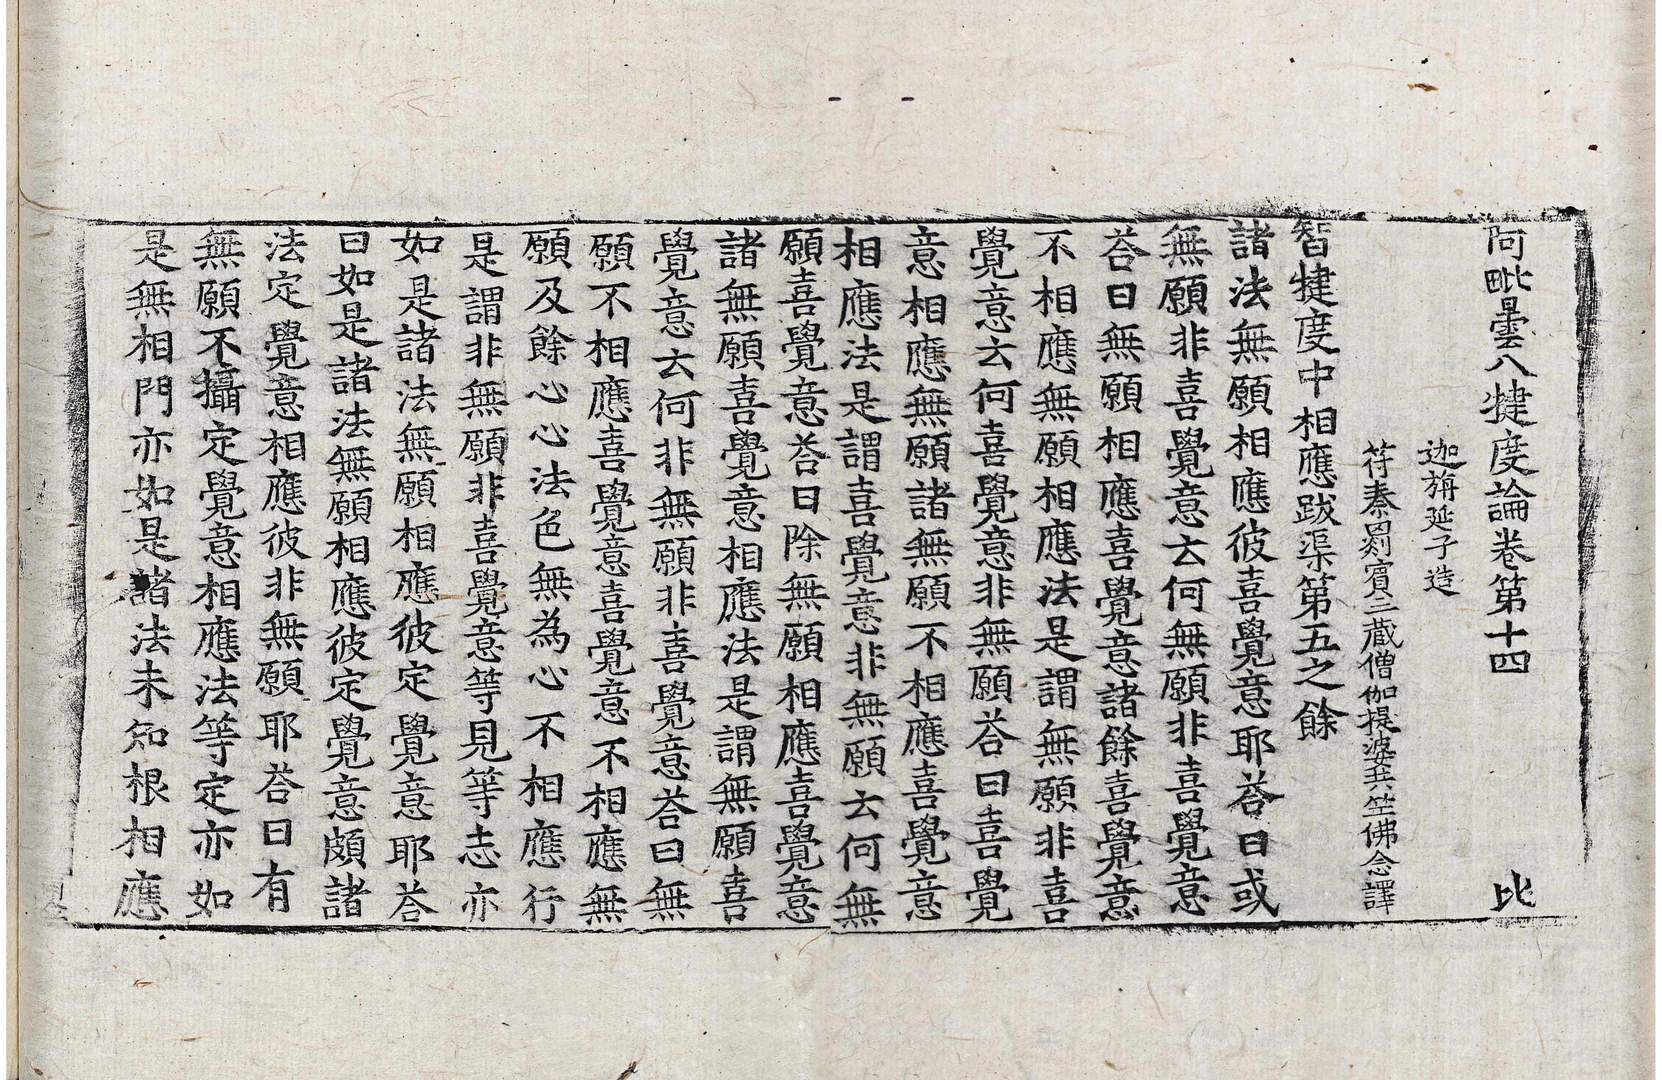 阿毗曇八犍度論卷第十四　比
迦旃延子造
符秦罽賓三藏僧伽提婆共竺佛念譯
智犍度中相應跋渠第五之餘
諸法無願相應彼喜覺意耶荅曰或
無願非喜覺意云何無願非喜覺意
荅曰無願相應喜覺意諸餘喜覺意
不相應無願相應法是謂無願非喜
覺意云何喜覺意非無願荅曰喜覺
意相應無願諸無願不相應喜覺意
相應法是謂喜覺意非無願云何無
願喜覺意荅曰除無願相應喜覺意
諸無願喜覺意相應法是謂無願喜
覺意云何非無願非喜覺意荅曰無
願不相應喜覺意喜覺意不相應無
願及餘心心法色無為心不相應行
是謂非無願非喜覺意等見等志亦
如是諸法無願相應彼定覺意耶荅
曰如是諸法無願相應彼定覺意頗諸
法定覺意相應彼非無願耶荅曰有
無願不攝定覺意相應法等定亦如
是無相門亦如是諸法未知根相應